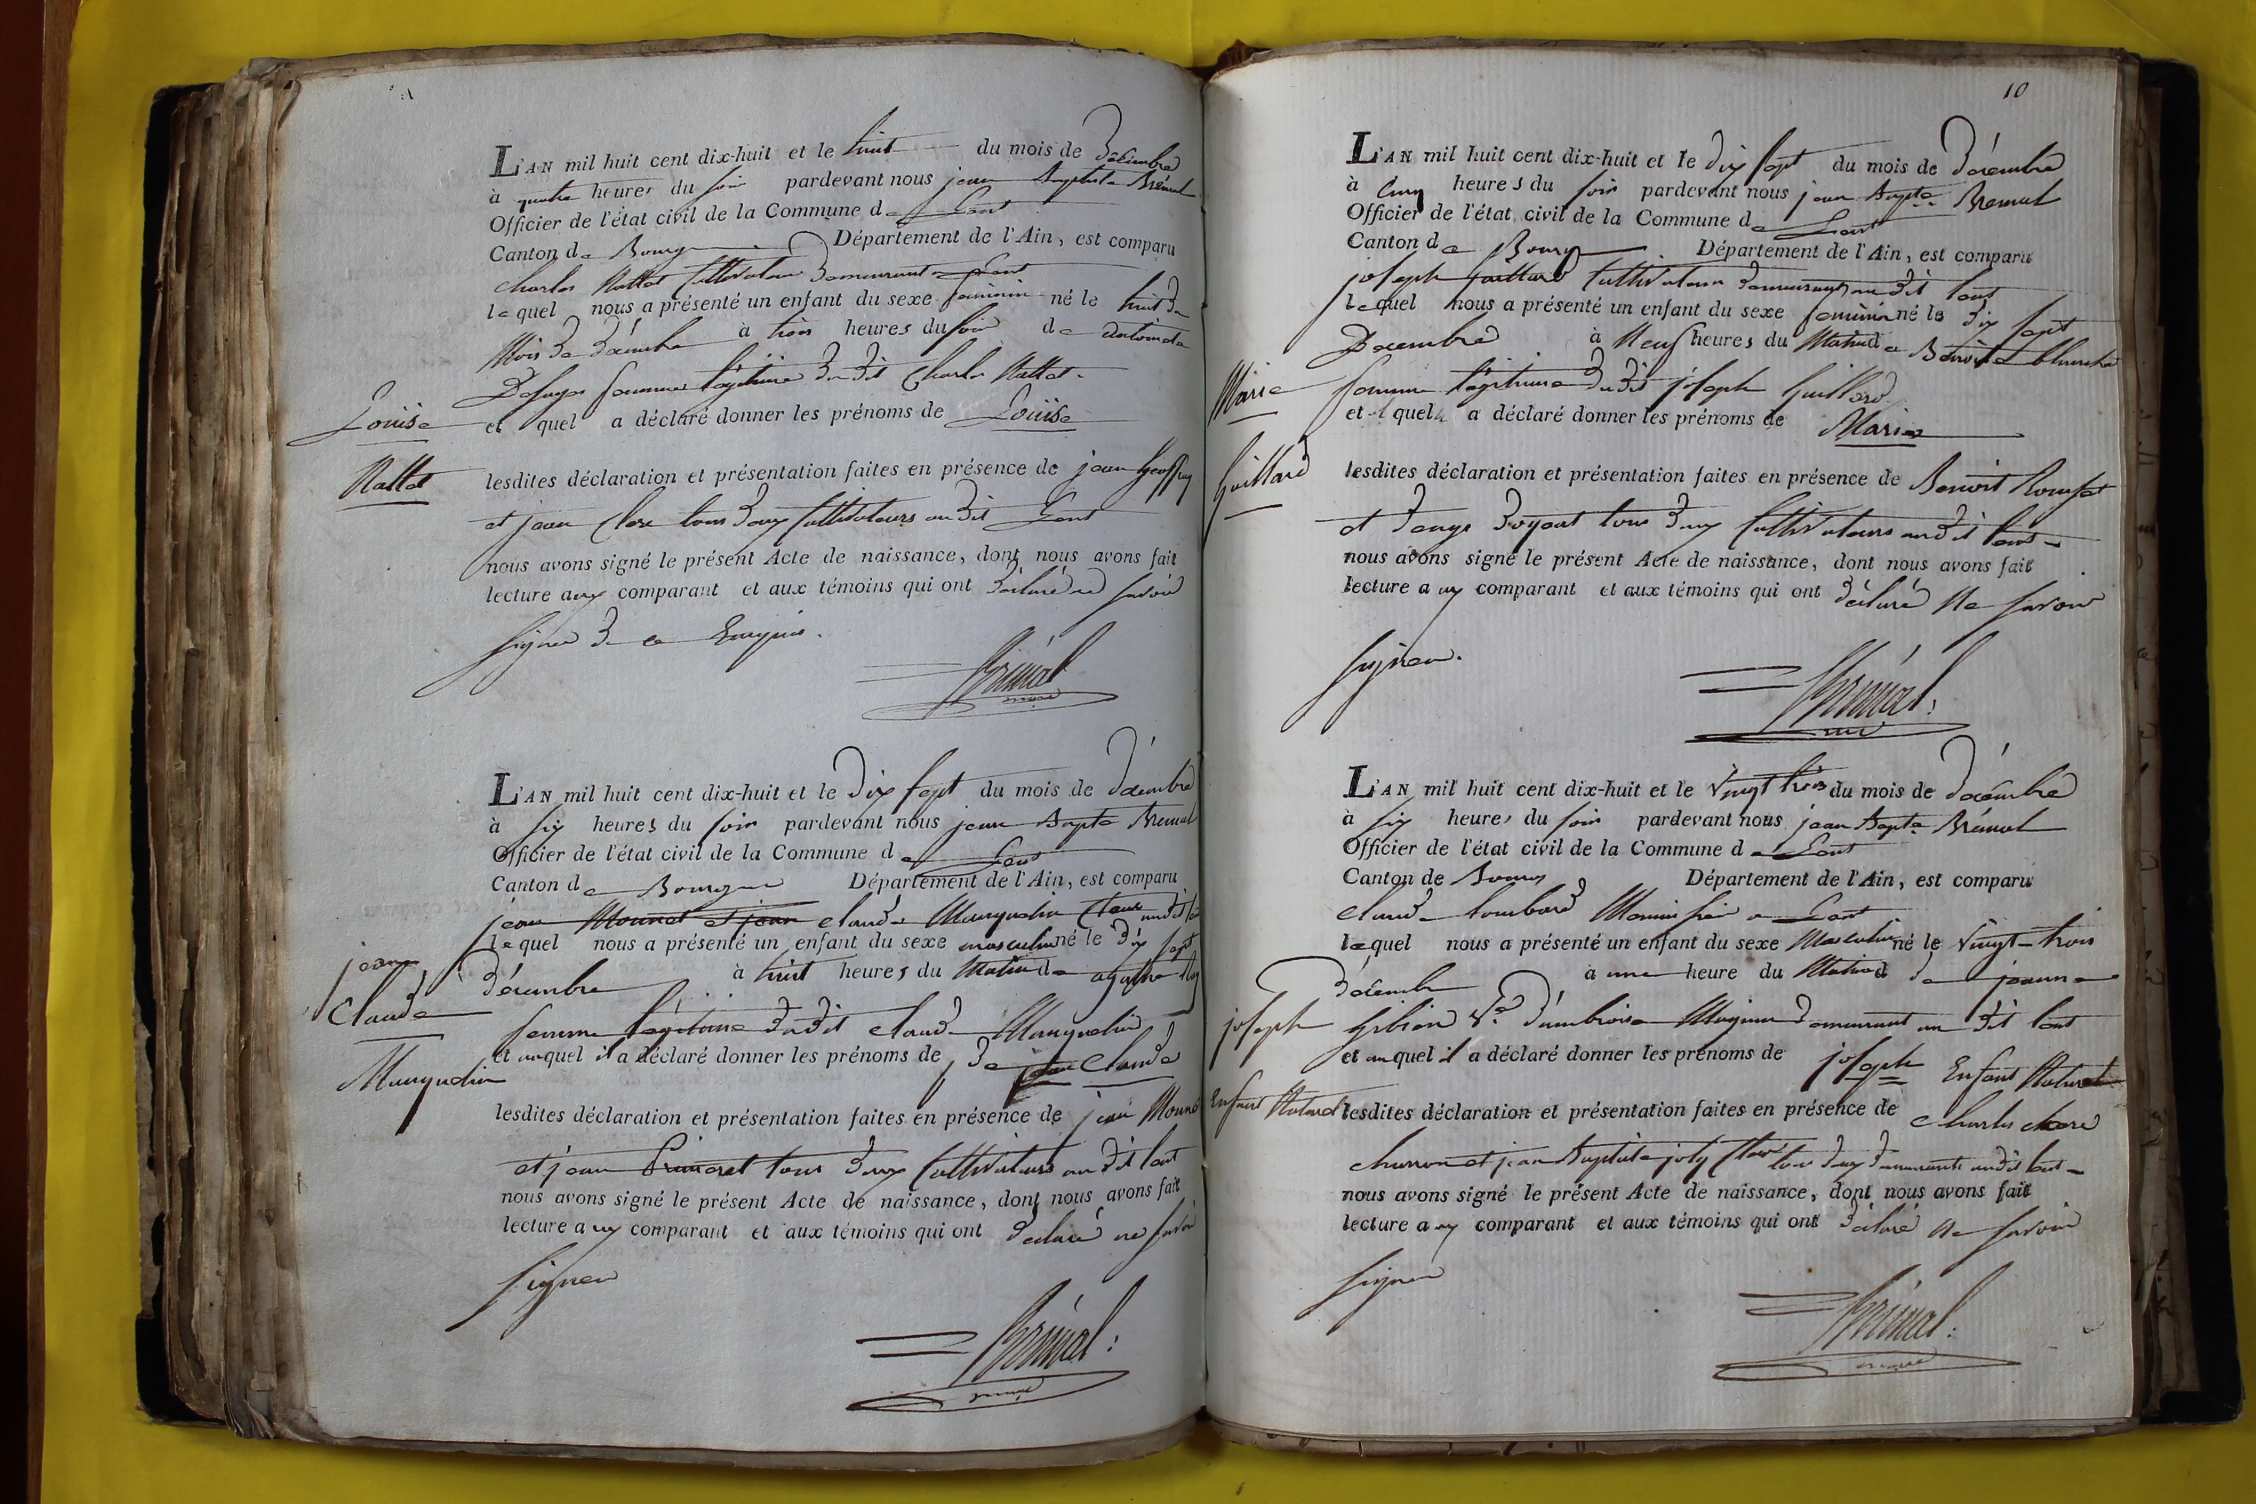 L'AN mil huit cent dix-huit et le huit du mois de décembre
à quatre heures du soir pardevant nous jean Baptiste Brémal
Officier de l'état civil de la Commune de
Canton de Bourg Département de l'Ain, est comparu
Charles Nallet Cultivateur demeurant a
lequel nous a présenté un enfant du sexe féminin né le huit du
Mois de décembre à trois heures du soir de
femme légitime du dit Charles Nallet
Louise
et quel a déclaré donner les prénoms de Louise
Nallet
lesdites déclaration et présentation faites en présence de jean Geoffray
et jean tous deux Cultivateurs au dit
nous avons signé le présent Acte de naissance, dont nous avons fait
lecture aux comparant et aux témoins qui ont déclaré ne savoir
signer de ce Enquis.
Brémal
maire
L'AN mil huit cent dix-huit et le dix sept du mois de décembre
à six heures du soir pardevant nous jean Bapte Bremal
Officier de l'état civil de la Commune de
Canton de Bourg Département de l'Ain, est comparu
jean Monnet et jean claude
lequel nous a présenté un enfant du sexe masculin né le dix sept
décembre à huit heures du Matin de agathe
jean
Claude
femme légitime du dit claude
et auquel il a déclaré donner les prénoms de de jean Claude
lesdites déclaration et présentation faites en présence de jean
et jean tous deux Cultivateurs au dit
nous avons signé le présent Acte de naissance, dont nous avons fait
lecture aux comparant et aux témoins qui ont déclaré ne savoir
signer
Brémal
maire
10
L'AN mil huit cent dix-huit et le dix sept du mois de décembre
à Cinq heures du soir pardevant nous jean Bapte Bremal
Officier de l'état civil de la Commune de
Canton de Bourg Département de l'Ain, est comparu
joseph Guillard Cultivateur demeurant au dit
lequel nous a présenté un enfant du sexe féminin né le dix sept
Décembre à Neuf heures du Matin de Benoite Blanchet
Marie
femme légitime du dit joseph Guillard
et quel a déclaré donner les prénoms de Marie
Guillard
lesdites déclaration et présentation faites en présence de Benoit
et tous deux Cultivateurs au dit
nous avons signé le présent Acte de naissance, dont nous avons fait
lecture aux comparant et aux témoins qui ont déclaré Ne savoir
signer.
Brémal
L'AN mil huit cent dix-huit et le Vingt trois du mois de décembre
à six heures du soir pardevant nous jean Bapte Brémal
Officier de l'état civil de la Commune de
Canton de Bourg Département de l'Ain, est comparu
claude
lequel nous a présenté un enfant du sexe Masculin né le Vingt-trois
décembre à une heure du Matin de jeanne
joseph
Ve d'ambroise demeurant au dit
et auquel il a déclaré donner les prénoms de joseph Enfant Naturel
Enfant Naturel
lesdites déclaration et présentation faites en présence de Charles
charron et jean Baptiste joly tous deux demeurants au dit
nous avons signé le présent Acte de naissance, dont nous avons fait
lecture aux comparant et aux témoins qui ont déclaré Ne savoir
signer
Brémal
maire